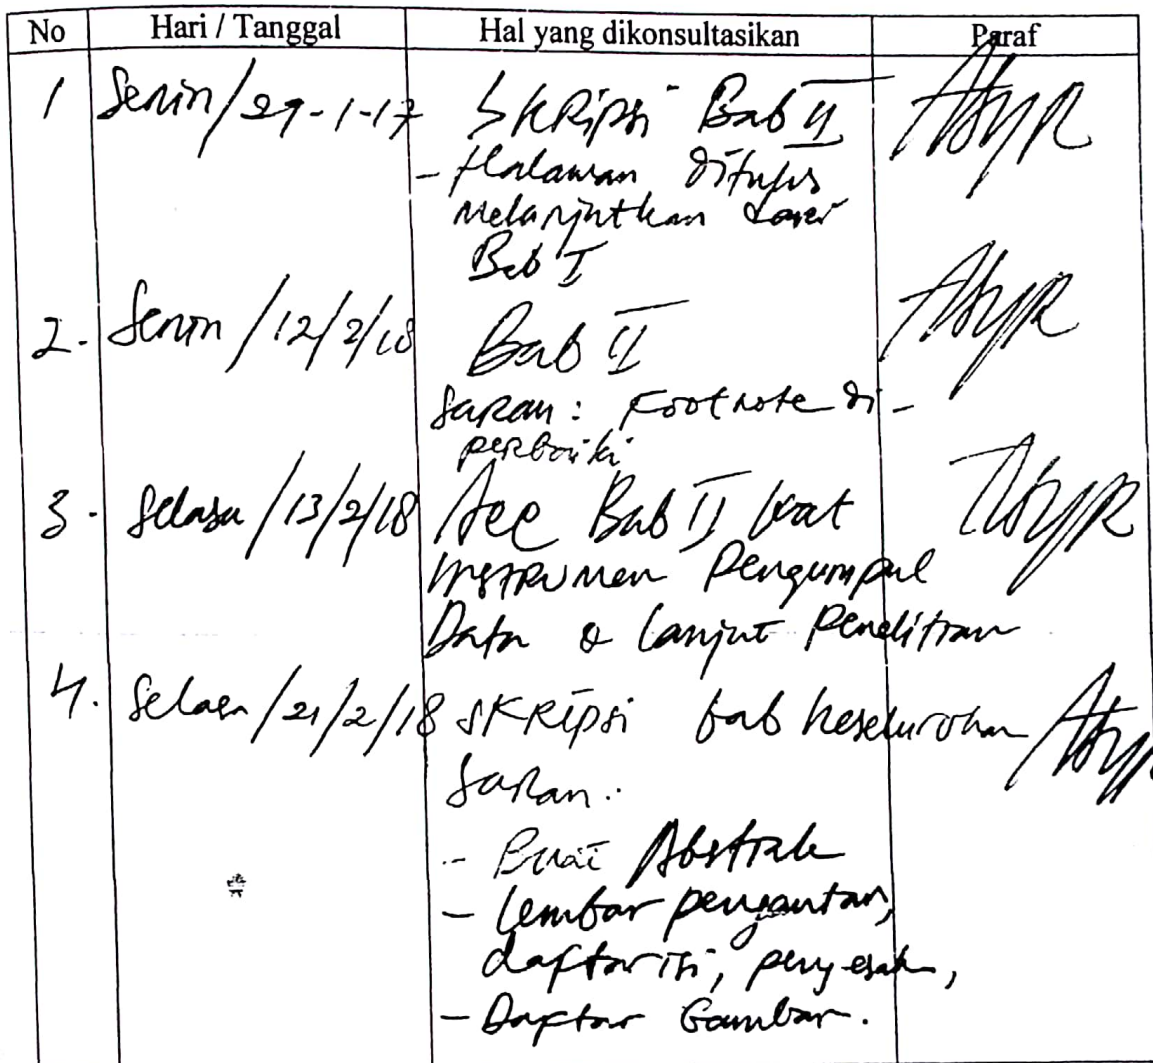 No Hari / Tanggal Hal yang dikonsultasikan Paraf
1 Senin / 29-1-17 SKRipsi Bab II
- Halaman ditulis
melanjutkan dari
Bab I
2. Senin / 12/2/18 Bab II
SaRan : Footnote di-
peRbaiki
3. Selasa / 13/2/18 Acc Bab II buat
instRumen Pengumpul
Data & lanjut Penelitian
4. Selasa / 21/2/18 SKRipsi bab keseluruhan
SaRan :
- Buat Abstrak
- lembar pengantar,
daftar isi, pengesahan,
- Daftar Gambar.